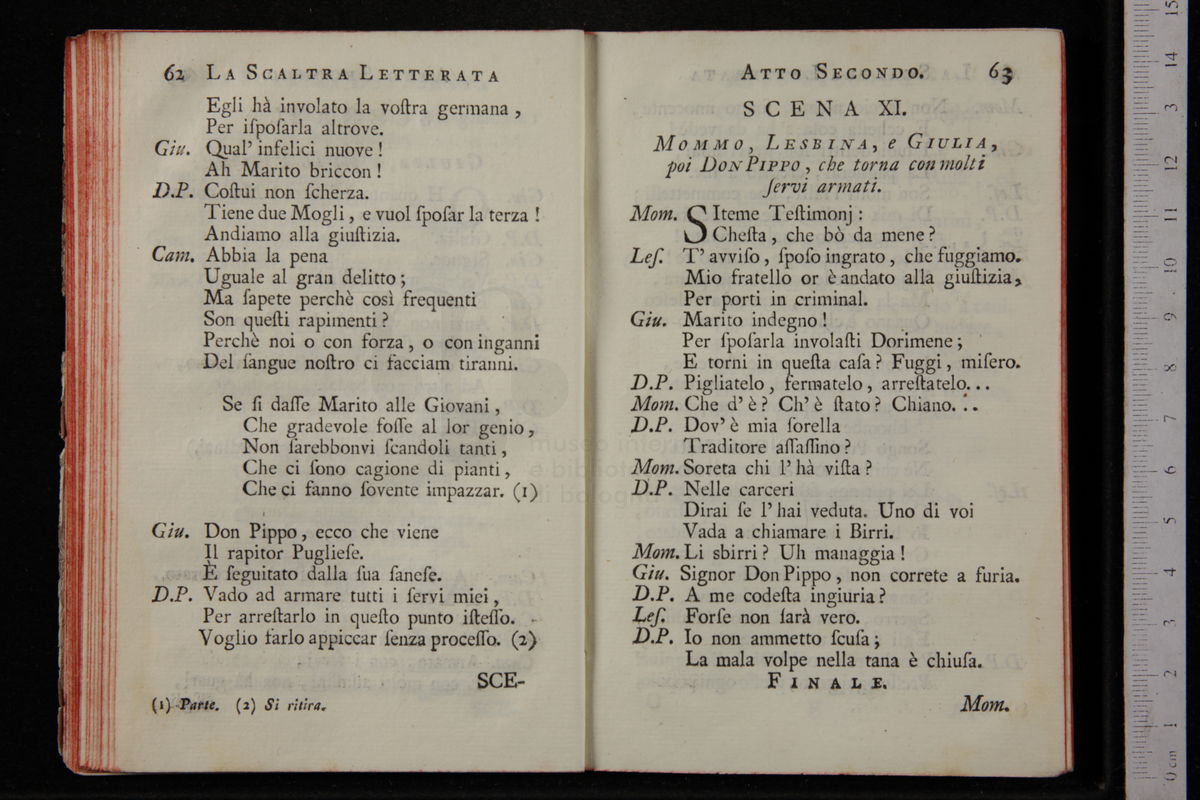 62 LA SCALTRA LETTERATA
Egli hà involato la voſtra germana ,
Per iſpoſarla altrove.
Giu. Qual' infelici nuove !
Ah Marito briccon !
D.P. Coſtui non ſcherza.
Tiene due Mogli , e vuol ſpoſar la terza !
Andiamo alla giuſtizia.
Cam. Abbia la pena
Uguale al gran delitto ;
Ma ſapete perchè così frequenti
Son queſti rapimenti ?
Perchè noi o con forza , o con inganni
Del ſangue noſtro ci facciam tiranni.
Se ſi daſſe Marito alle Giovani ,
Che gradevole foſſe al lor genio ,
Non ſarebbonvi ſcandoli tanti ,
Che ci ſono cagione di pianti ,
Che ci fanno ſovente impazzar. (1)
Giu. Don Pippo , ecco che viene
Il rapitor Puglieſe.
E ſeguitato dalla ſua ſaneſe.
D.P. Vado ad armare tutti i ſervi miei ,
Per arreſtarlo in queſto punto iſteſſo.
Voglio farlo appiccar ſenza proceſſo. (2)
SCE-
(1) Parte. (2) Si ritira.
ATTO SECONDO. 63
SCENA XI.
MOMMO, LESBINA, e GIULIA,
poi DON PIPPO , che torna con molti
ſervi armati.
Mom. SIteme Teſtimonj :
Cheſta , che bò da mene ?
Leſ. T' avviſo , ſpoſo ingrato , che fuggiamo.
Mio fratello or è andato alla giuſtizia,
Per porti in criminal.
Giu. Marito indegno !
Per ſpoſarla involaſti Dorimene ;
E torni in queſta caſa ? Fuggi , miſero.
D.P. Pigliatelo , fermatelo , arreſtatelo...
Mom. Che d' è ? Ch' è ſtato ? Chiano. ..
D.P. Dov' è mia ſorella
Traditore aſſaſſino ?
Mom. Soreta chi l' hà viſta ?
D.P. Nelle carceri
Dirai ſe l' hai veduta. Uno di voi
Vada a chiamare i Birri.
Mom. Li sbirri ? Uh managgia !
Giu. Signor Don Pippo , non correte a furia.
D.P. A me codeſta ingiuria ?
Leſ. Forſe non ſarà vero.
D.P. Io non ammetto ſcuſa ;
La mala volpe nella tana è chiuſa.
FINALE.
Mom.